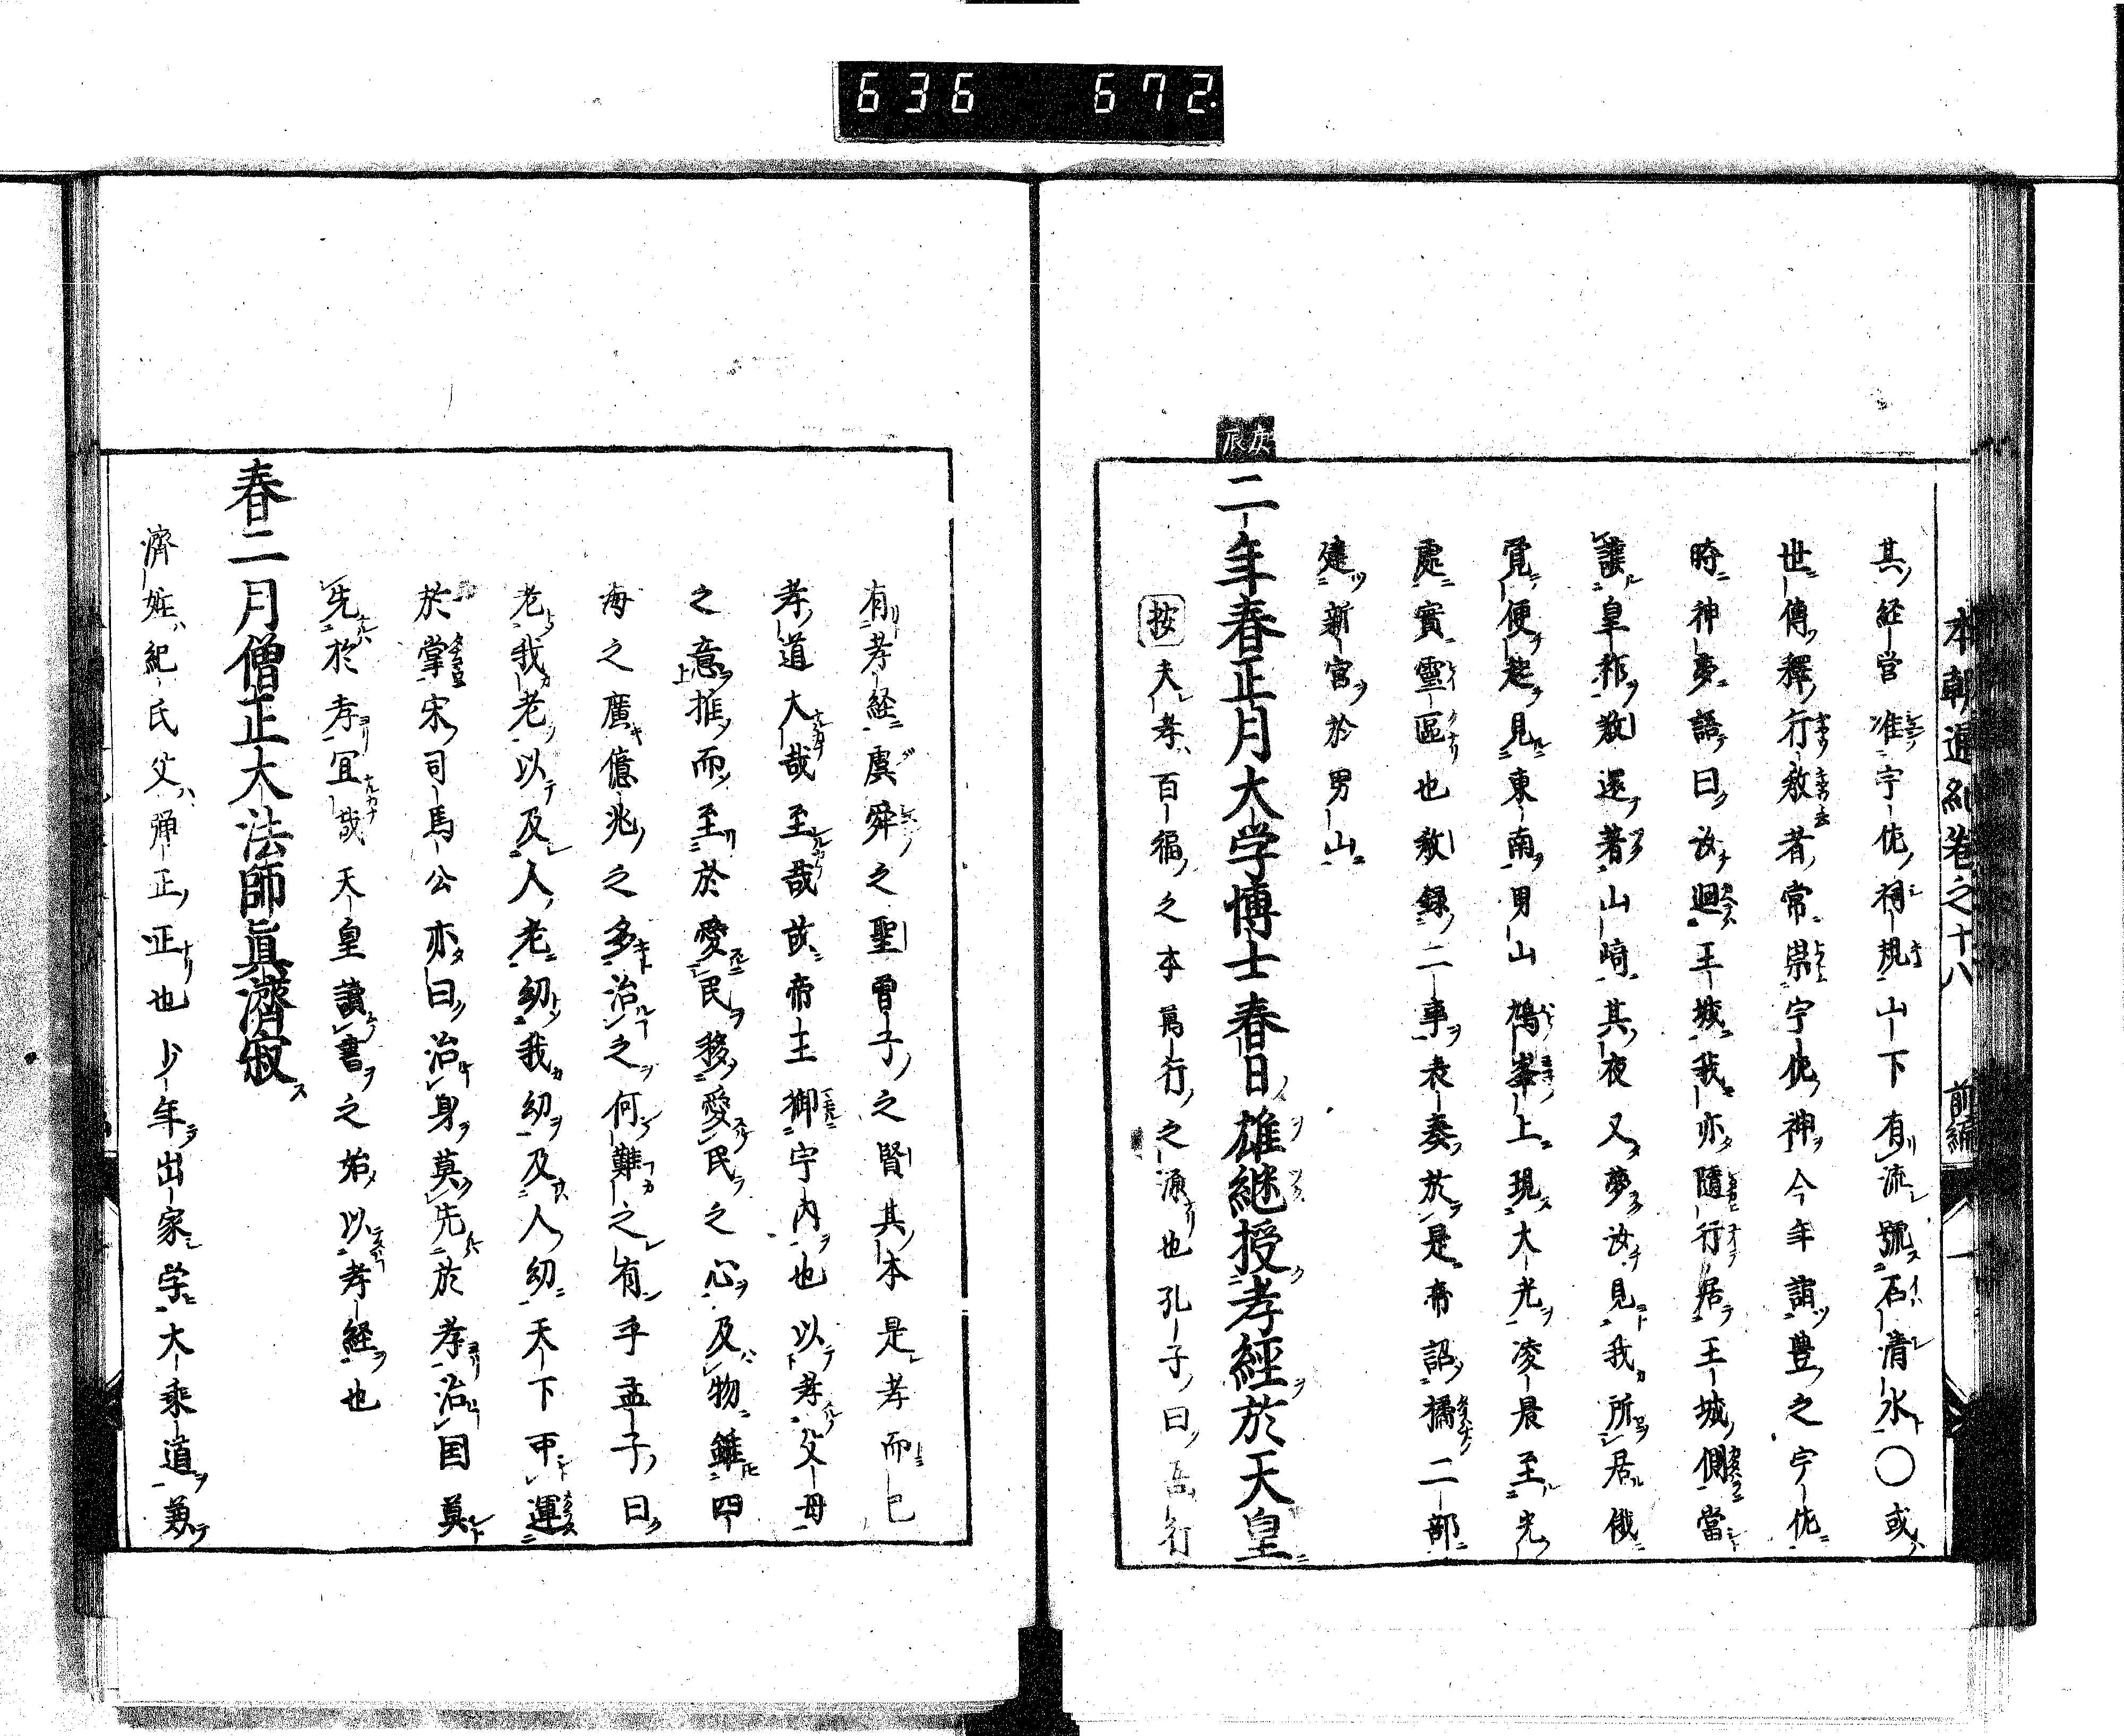 636 672
本朝通紀巻之十八 前編 一
其経営准宇佐祠規山下有流號石清水〇或
世傳釋行教者常崇宇佐神今年詣豊之宇佐
時神夢語曰汝廻王城我亦隨行居王城側當
護皇祚教還著山崎其夜又夢汝見我所居俄
覚便起見東南男山鳩峯上現大光凌晨至光
處實霊區也教録二事表奏於是帝詔橘二部
建新宮於男山
二年春正月大学博士春日雄継授孝經於天皇
按夫孝百福之本萬行之源也孔子曰吾行
有孝経虞舜之聖曽子之賢其本是孝而已
孝道大哉至哉故帝王御宇内也以孝父母
之意推而至於愛民移愛民之心及物雖四
海之廣億兆之多治之何難之有乎孟子曰
老我老以及人老幼我幼及人幼天下可運
於掌宋司馬公亦曰治身莫先於孝治国莫
先於孝宜哉天皇讀書之始以孝経也
春二月僧正大法師眞濟寂
濟姓紀氏父弾正正也少年出家学大乘道兼